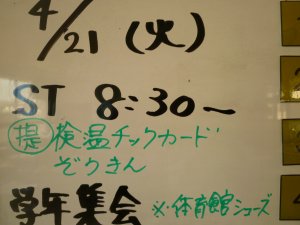 4/21 (火)
ST 8:30～
提 検温チックカード
ぞうきん
学年集会 ※・体育館シューズ